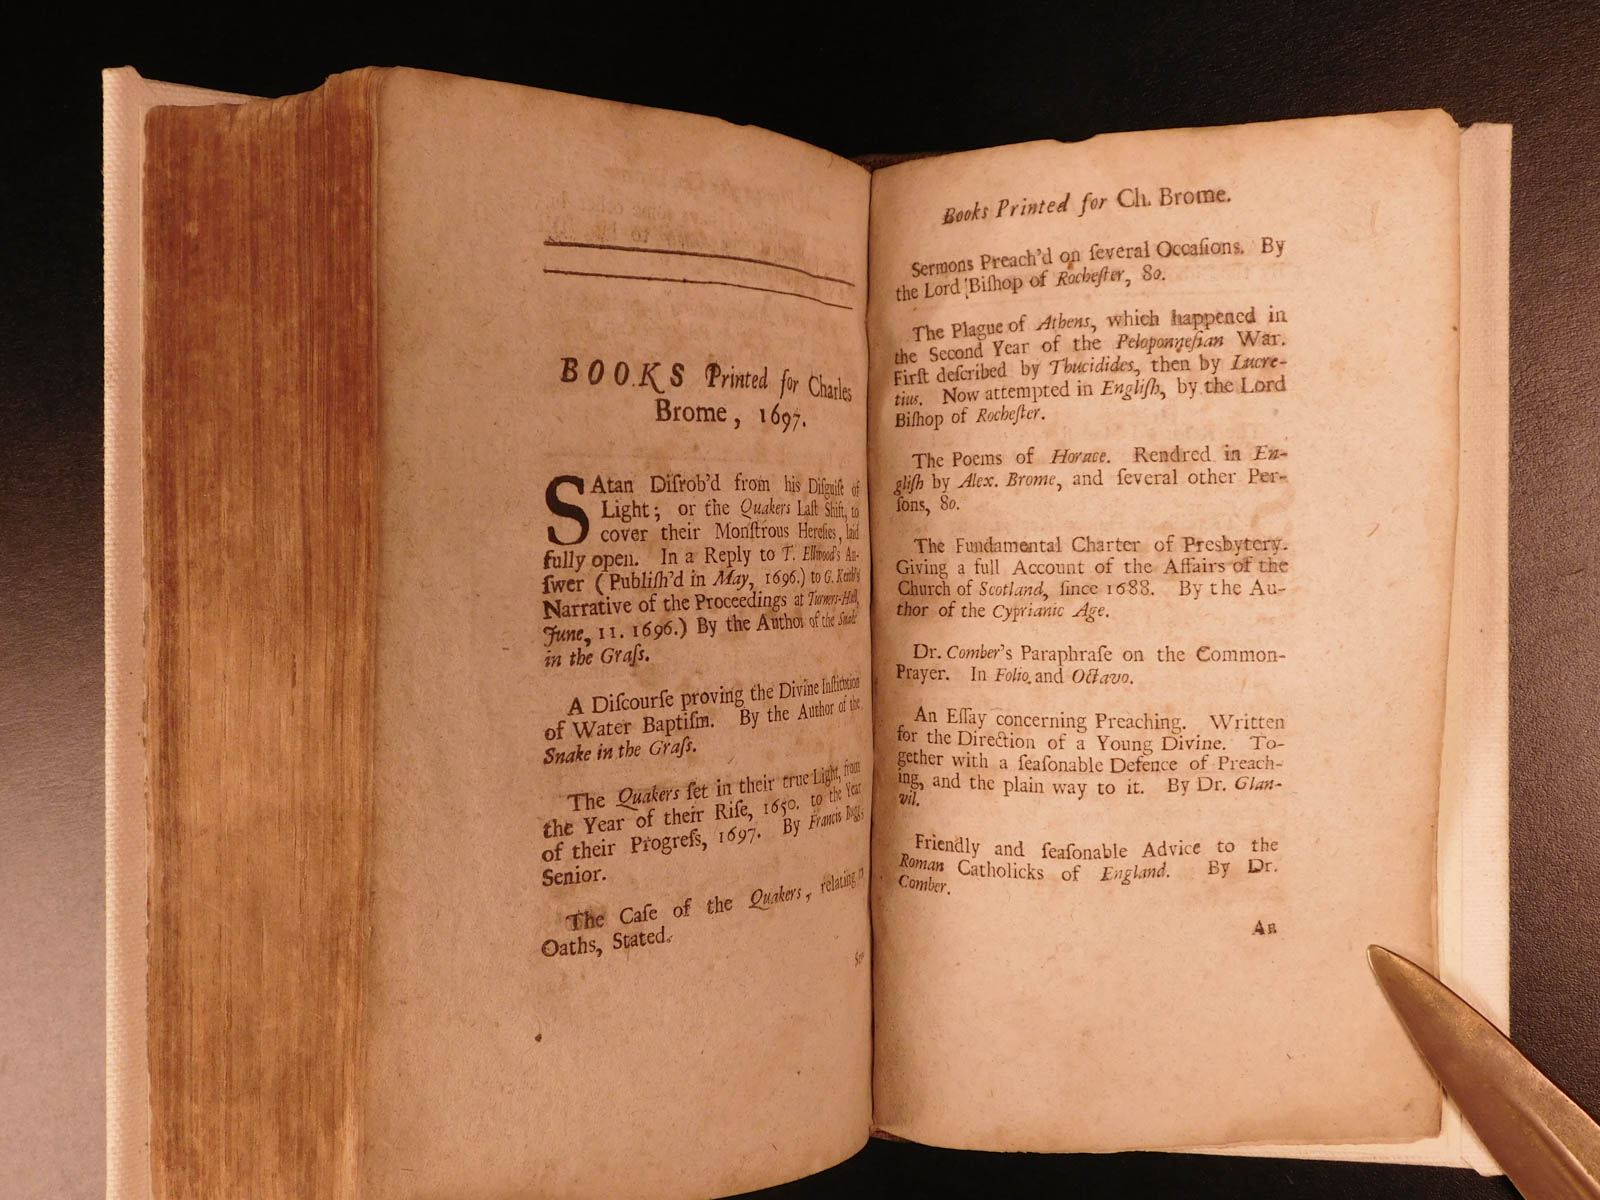 BOOKS Printed for Charles
Brome, 1697.
SAtan Diſrob'd from his Diſguiſe of
Light; or the Quakers Laſt Shift, to
cover their Monſtrous Hereſies, laid
fully open. In a Reply to T. Ellwood's An-
ſwer (Publiſh'd in May, 1696.) to G. Keith's
Narrative of the Proceedings at Turners-Hall,
June, 11. 1696.) By the Author of the Snake
in the Graſs.
A Diſcourſe proving the Divine Inſtitution
of Water Baptiſm. By the Author of the
Snake in the Graſs.
The Quakers ſet in their true Light, from
the Year of their Riſe, 1650. to the Year
of their Progreſs, 1697. By Francis Bugg,
Senior.
The Caſe of the Quakers, relating to
Oaths, Stated.
Books Printed for Ch. Brome.
Sermons Preach'd on ſeveral Occaſions. By
the Lord Biſhop of Rocheſter, 8o.
The Plague of Athens, which happened in
the Second Year of the Peloponneſian War.
Firſt deſcribed by Thucidides, then by Lucre-
tius. Now attempted in Engliſh, by the Lord
Biſhop of Rocheſter.
The Poems of Horace. Rendred in En-
gliſh by Alex. Brome, and ſeveral other Per-
ſons, 8o.
The Fundamental Charter of Presbytery.
Giving a full Account of the Affairs of the
Church of Scotland, ſince 1688. By the Au-
thor of the Cyprianic Age.
Dr. Comber's Paraphraſe on the Common-
Prayer. In Folio and Octavo.
An Eſſay concerning Preaching. Written
for the Direction of a Young Divine. To-
gether with a ſeaſonable Defence of Preach-
ing, and the plain way to it. By Dr. Glan-
vil.
Friendly and ſeaſonable Advice to the
Roman Catholicks of England. By Dr.
Comber.
An